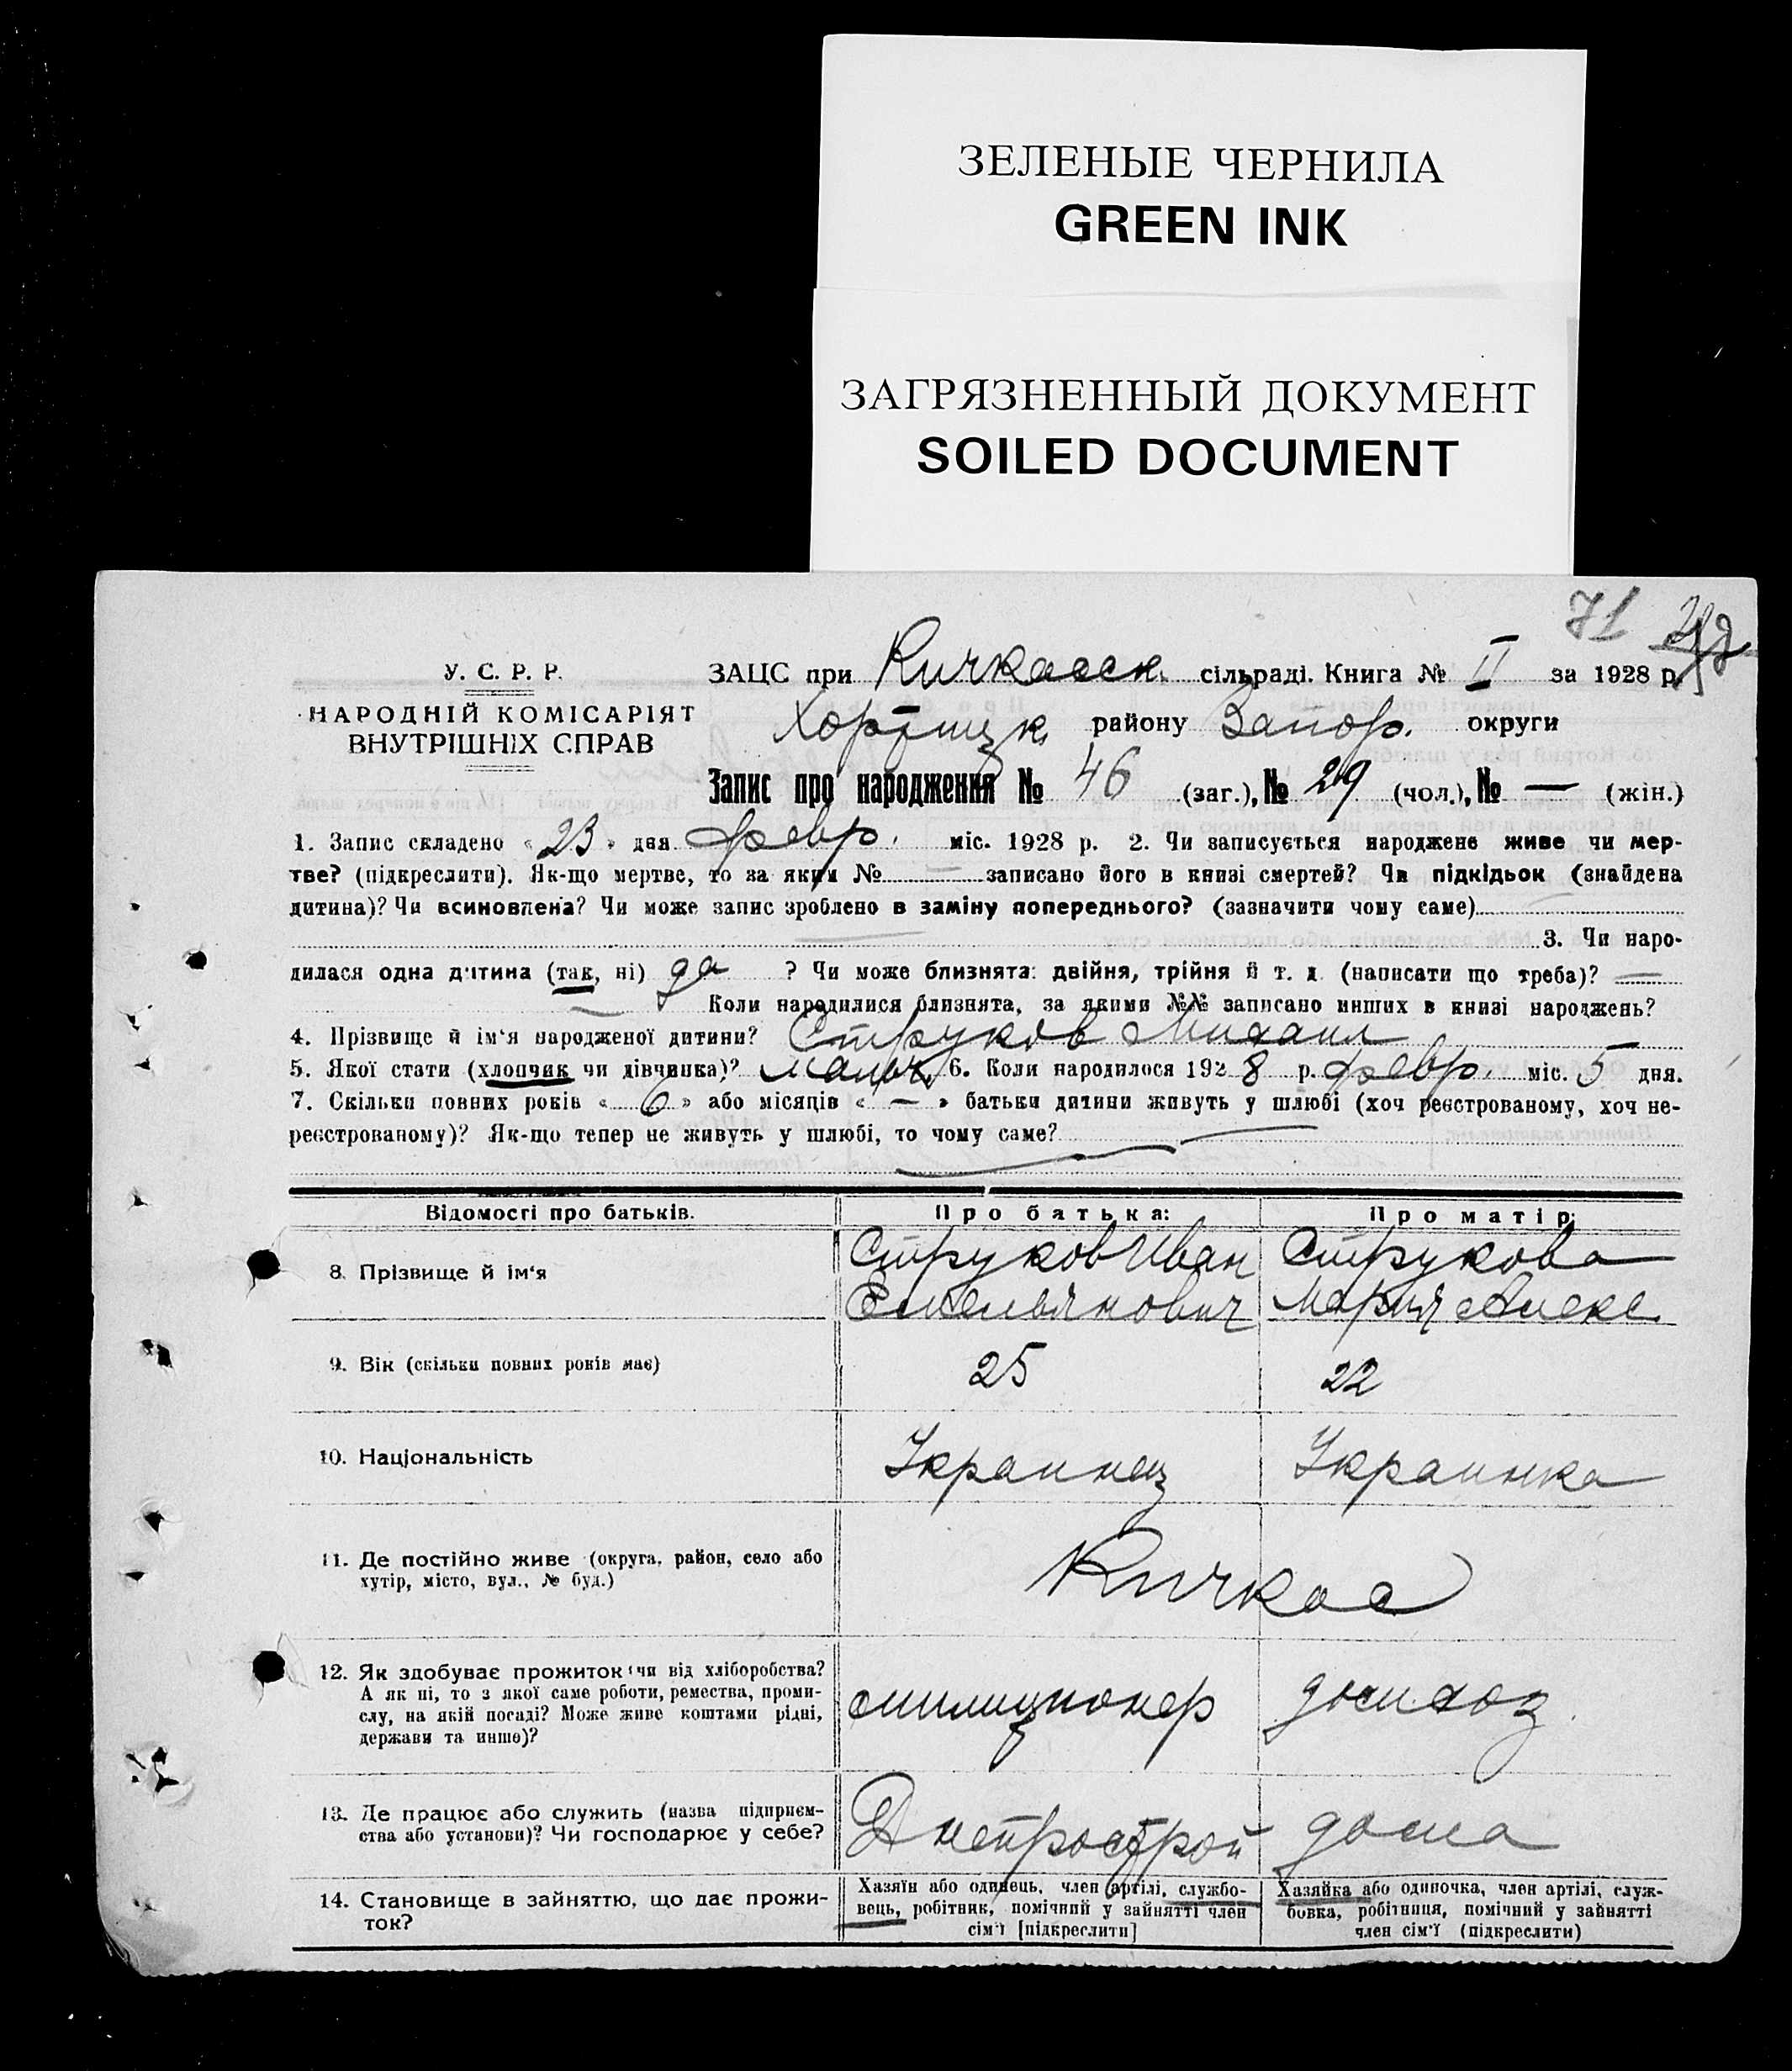 ЗЕЛЕНЫЕ ЧЕРНИЛА
GREEN INK
ЗАГРЯЗНЕННЫЙ ДОКУМЕНТ
SOILED DOCUMENT
71
У. С. Р. Р.
НАРОДНІЙ КОМІСАРІЯТ
ВНУТРІШНІХ СПРАВ
ЗАЦС при Кичкасск. сільраді. Книга № II за 1928 р.
Хортицк. району Запор. округи
Запис про народження № 46 (заг.), № 29 (чол.), № — (жін.)
1. Запис складено «23» дня февр. міс. 1928 р. 2. Чи записується народжене живе чи мер-
тве? (підкреслити). Як-що мертве, то за яким № — записано його в книзі смертей? Чи підкідьок (знайдена
дитина)? Чи всиновлена? Чи може запис зроблено в заміну попереднього? (зазначити чому саме)
— 3. Чи наро-
дилася одна дитина (так, ні) да ? Чи може близнята: двійня, трійня й т. д. (написати що треба)? —
— Коли народилися близнята, за якими №№ записано инших в книзі народжень?
4. Прізвище й ім'я народженої дитини? Струков Михаил
5. Якої стати (хлопчик чи дівчинка)? мальч. 6. Коли народилося 1928 р. февр. міс. 5 дня.
7. Скільки повних років «6» або місяців «—» батьки дитини живуть у шлюбі (хоч реєстрованому, хоч не-
реєстрованому)? Як-що тепер не живуть у шлюбі, то чому саме? —
Відомості про батьків. Про батька: Про матір:
8. Прізвище й ім'я Струков Иван Струкова
Емельянович Мария Алекс.
9. Вік (скільки повних років має) 25 22
10. Національність Украинец Украинка
11. Де постійно живе (округа, район, село або
хутір, місто, вул., № буд.) Кичкас
12. Як здобуває прожиток: чи від хліборобства?
А як ні, то з якої саме роботи, ремества, проми-
слу, на якій посаді? Може живе коштами рідні,
держави та инше)? милиционер домхоз.
13. Де працює або служить (назва підприєм-
ства або установи)? Чи господарює у себе? Днепрострой дома
14. Становище в зайняттю, що дає прожи-
ток?
Хазяїн або одинець, член артілі, службо-
вець, робітник, помічний у зайнятті член
сім'ї [підкреслити]
Хазяйка або одиночка, член артілі, служ-
бовка, робітниця, помічний у зайнятті
член сім'ї (підкреслити)